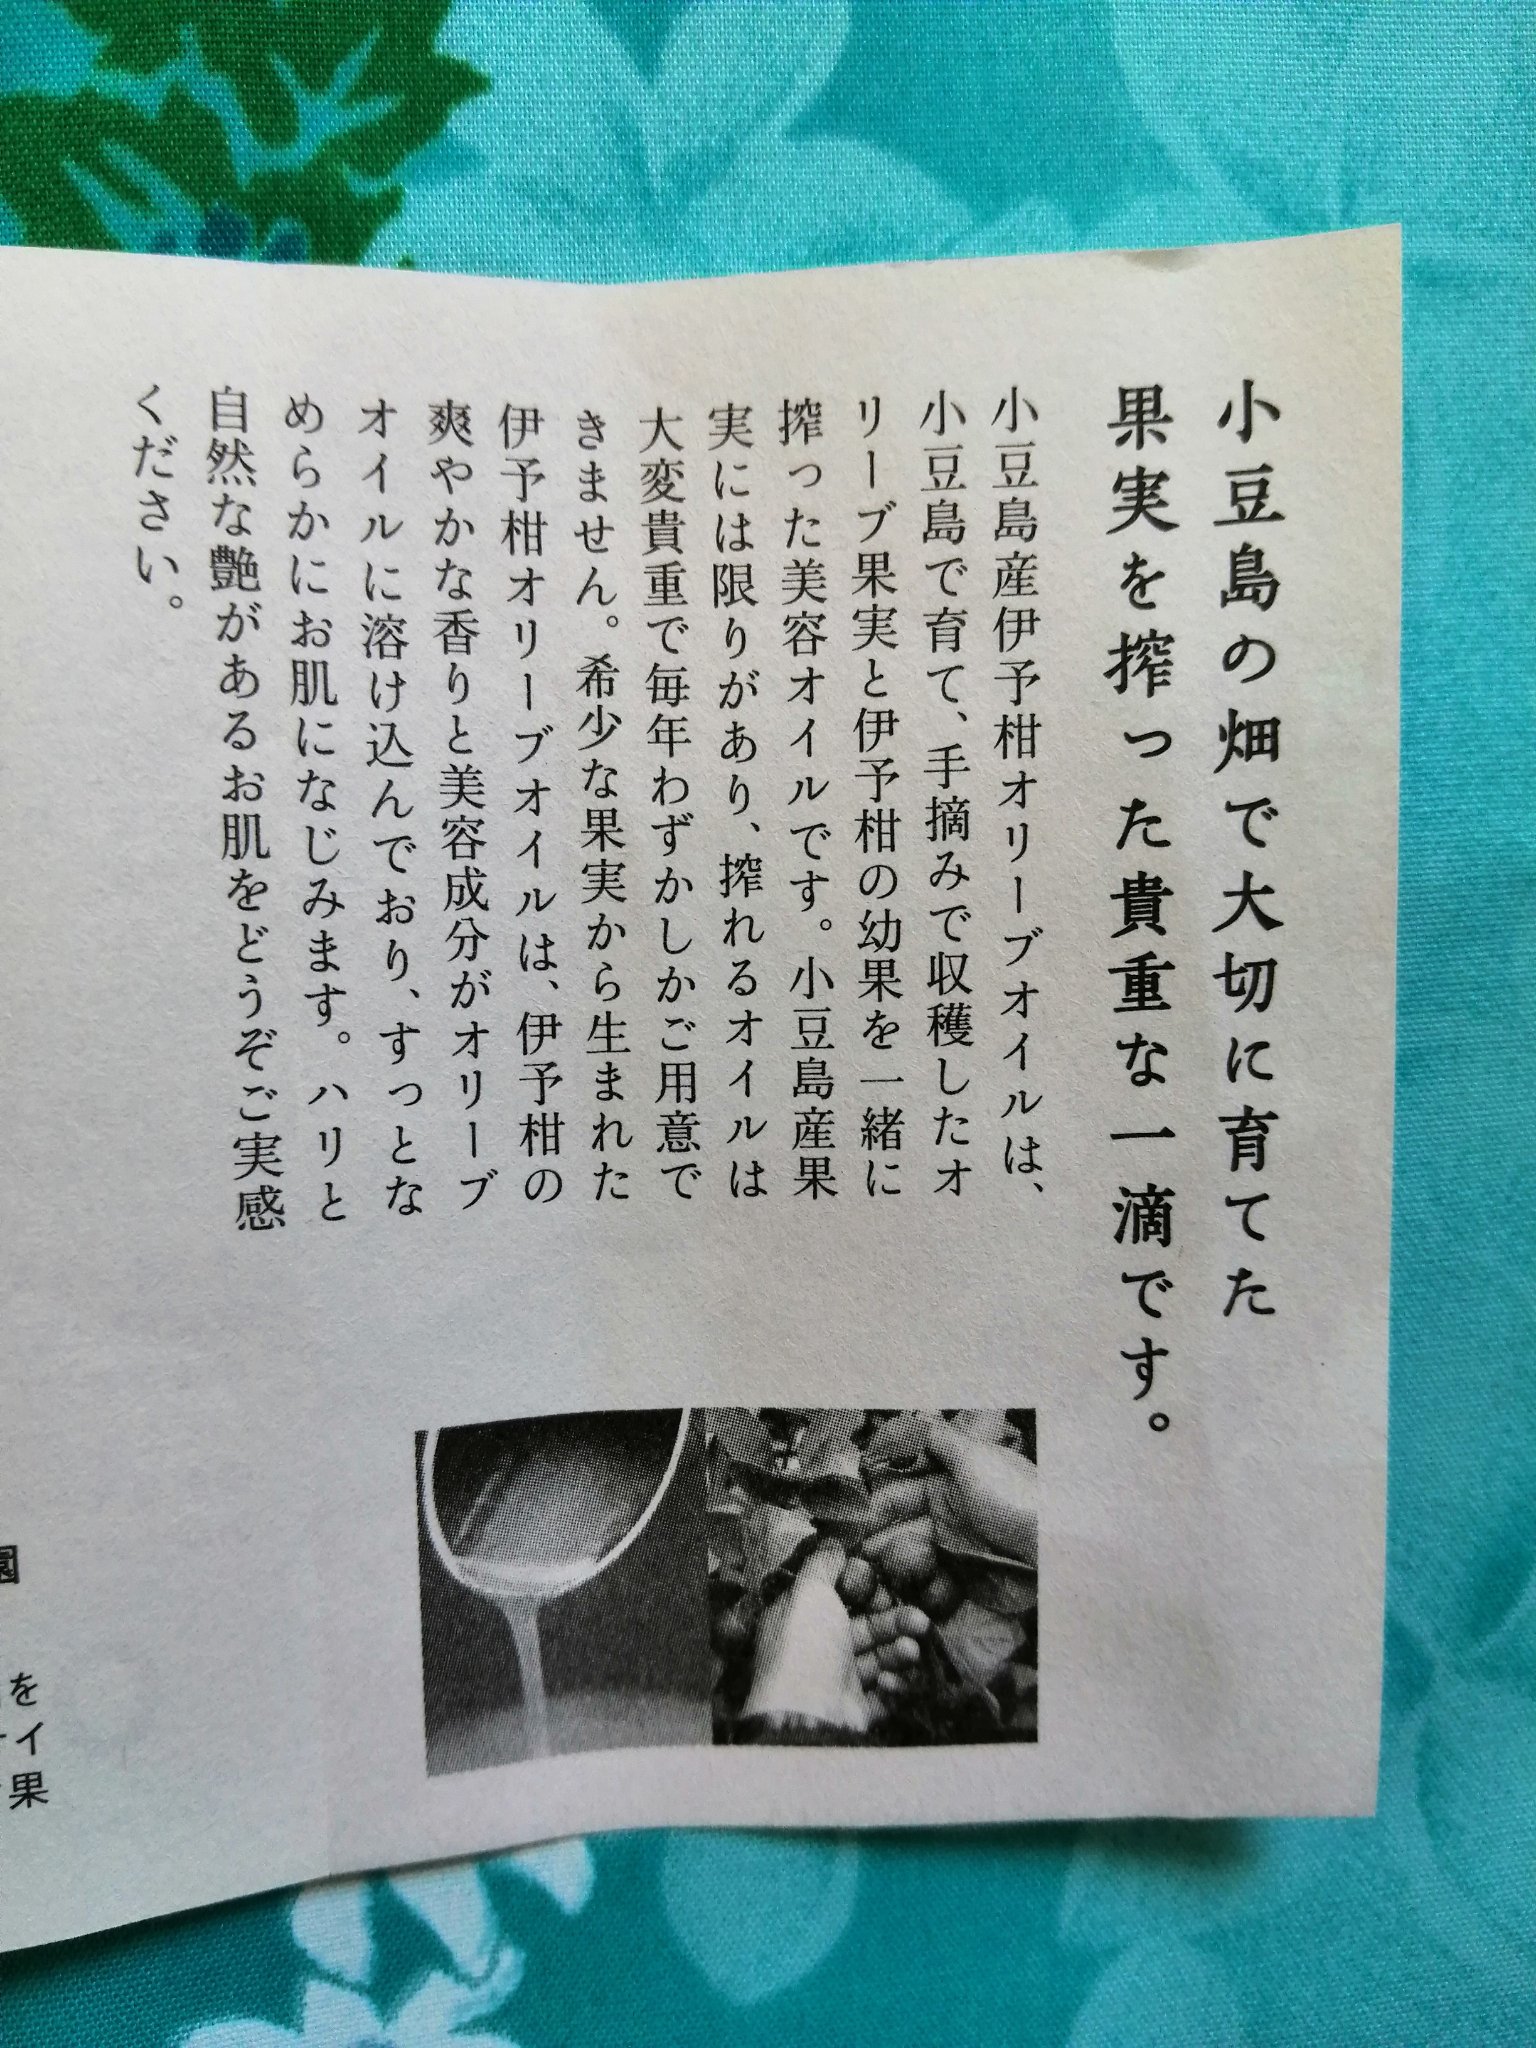 小豆島の畑で大切に育てた
果実を搾った貴重な一滴です。
小豆島産伊予柑オリーブオイルは、
小豆島で育て、手摘みで収穫したオ
リーブ果実と伊予柑の幼果を一緒に
搾った美容オイルです。小豆島産果
実には限りがあり、搾れるオイルは
大変貴重で毎年わずかしかご用意で
きません。希少な果実から生まれた
伊予柑オリーブオイルは、伊予柑の
爽やかな香りと美容成分がオリーブ
オイルに溶け込んでおり、すっとな
めらかにお肌になじみます。ハリと
自然な艶があるお肌をどうぞご実感
ください。
園
を
イ
果